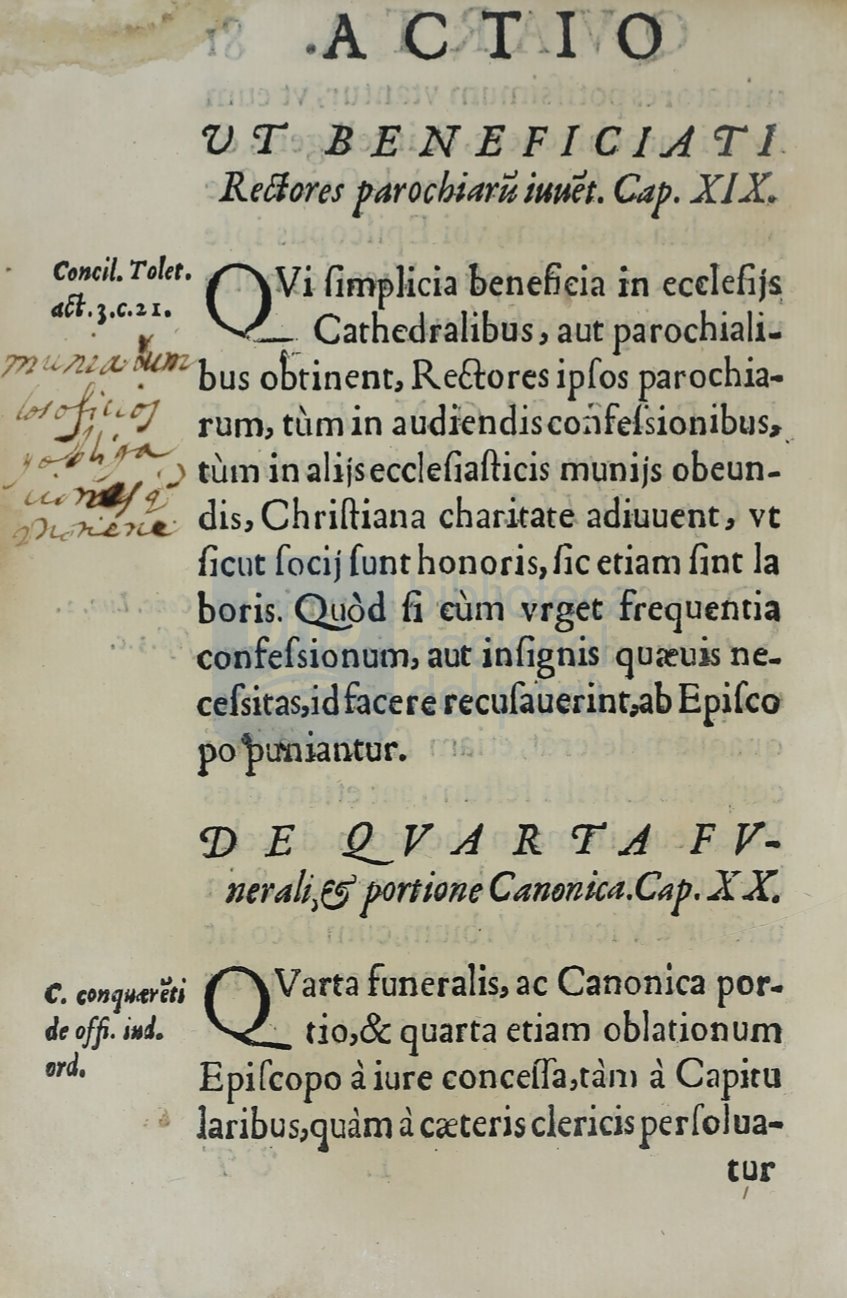 ACTIO
VT BENEFICIATI
Rectores parochiarū iuuēt. Cap. XIX.
Concil. Tolet.
act.3.c.21.
QVi ſimplicia beneficia in eccleſijs
Cathedralibus, aut parochiali-
bus obtinent, Rectores ipſos parochia-
rum, tùm in audiendis confeſsionibus,
tùm in alijs eccleſiaſticis munijs obeun-
dis, Chriſtiana charitate adiuuent, vt
ſicut ſocij ſunt honoris, ſic etiam ſint la
boris. Quòd ſi cùm vrget frequentia
confeſsionum, aut inſignis quæuis ne-
ceſsitas, id facere recuſauerint, ab Epiſco
po puniantur.
munia
los oficios
y obliga
ciones q̄
tienene
DE QVARTA FV-
nerali, & portione Canonica. Cap. XX.
C. conquærēti
de offi. iud.
ord.
QVarta funeralis, ac Canonica por-
tio, & quarta etiam oblationum
Epiſcopo à iure conceſſa, tàm à Capitu
laribus, quàm à cæteris clericis perſolua-
tur